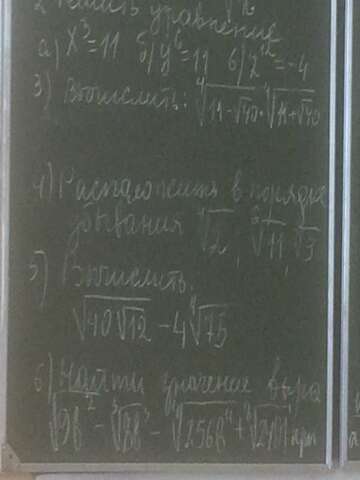 2 Решить уравнение
а) x³=11 б) y⁶=11 в) z¹²=-4
3) Вычислить: ⁴√(11-√40) · ⁴√(11+√40)
4) Расположить в порядке
убывания ⁴√2, ⁶√11, √3
5) Вычислить:
√(40√12) - 4⁴√75
6) Найти значение выра
√(9b²) - ³√(8b³) - ⁴√(256b⁴) + при